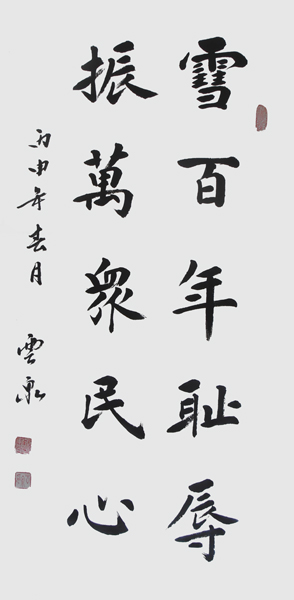 雪百年耻辱
振萬眾民心
丙申年春月
雲泉